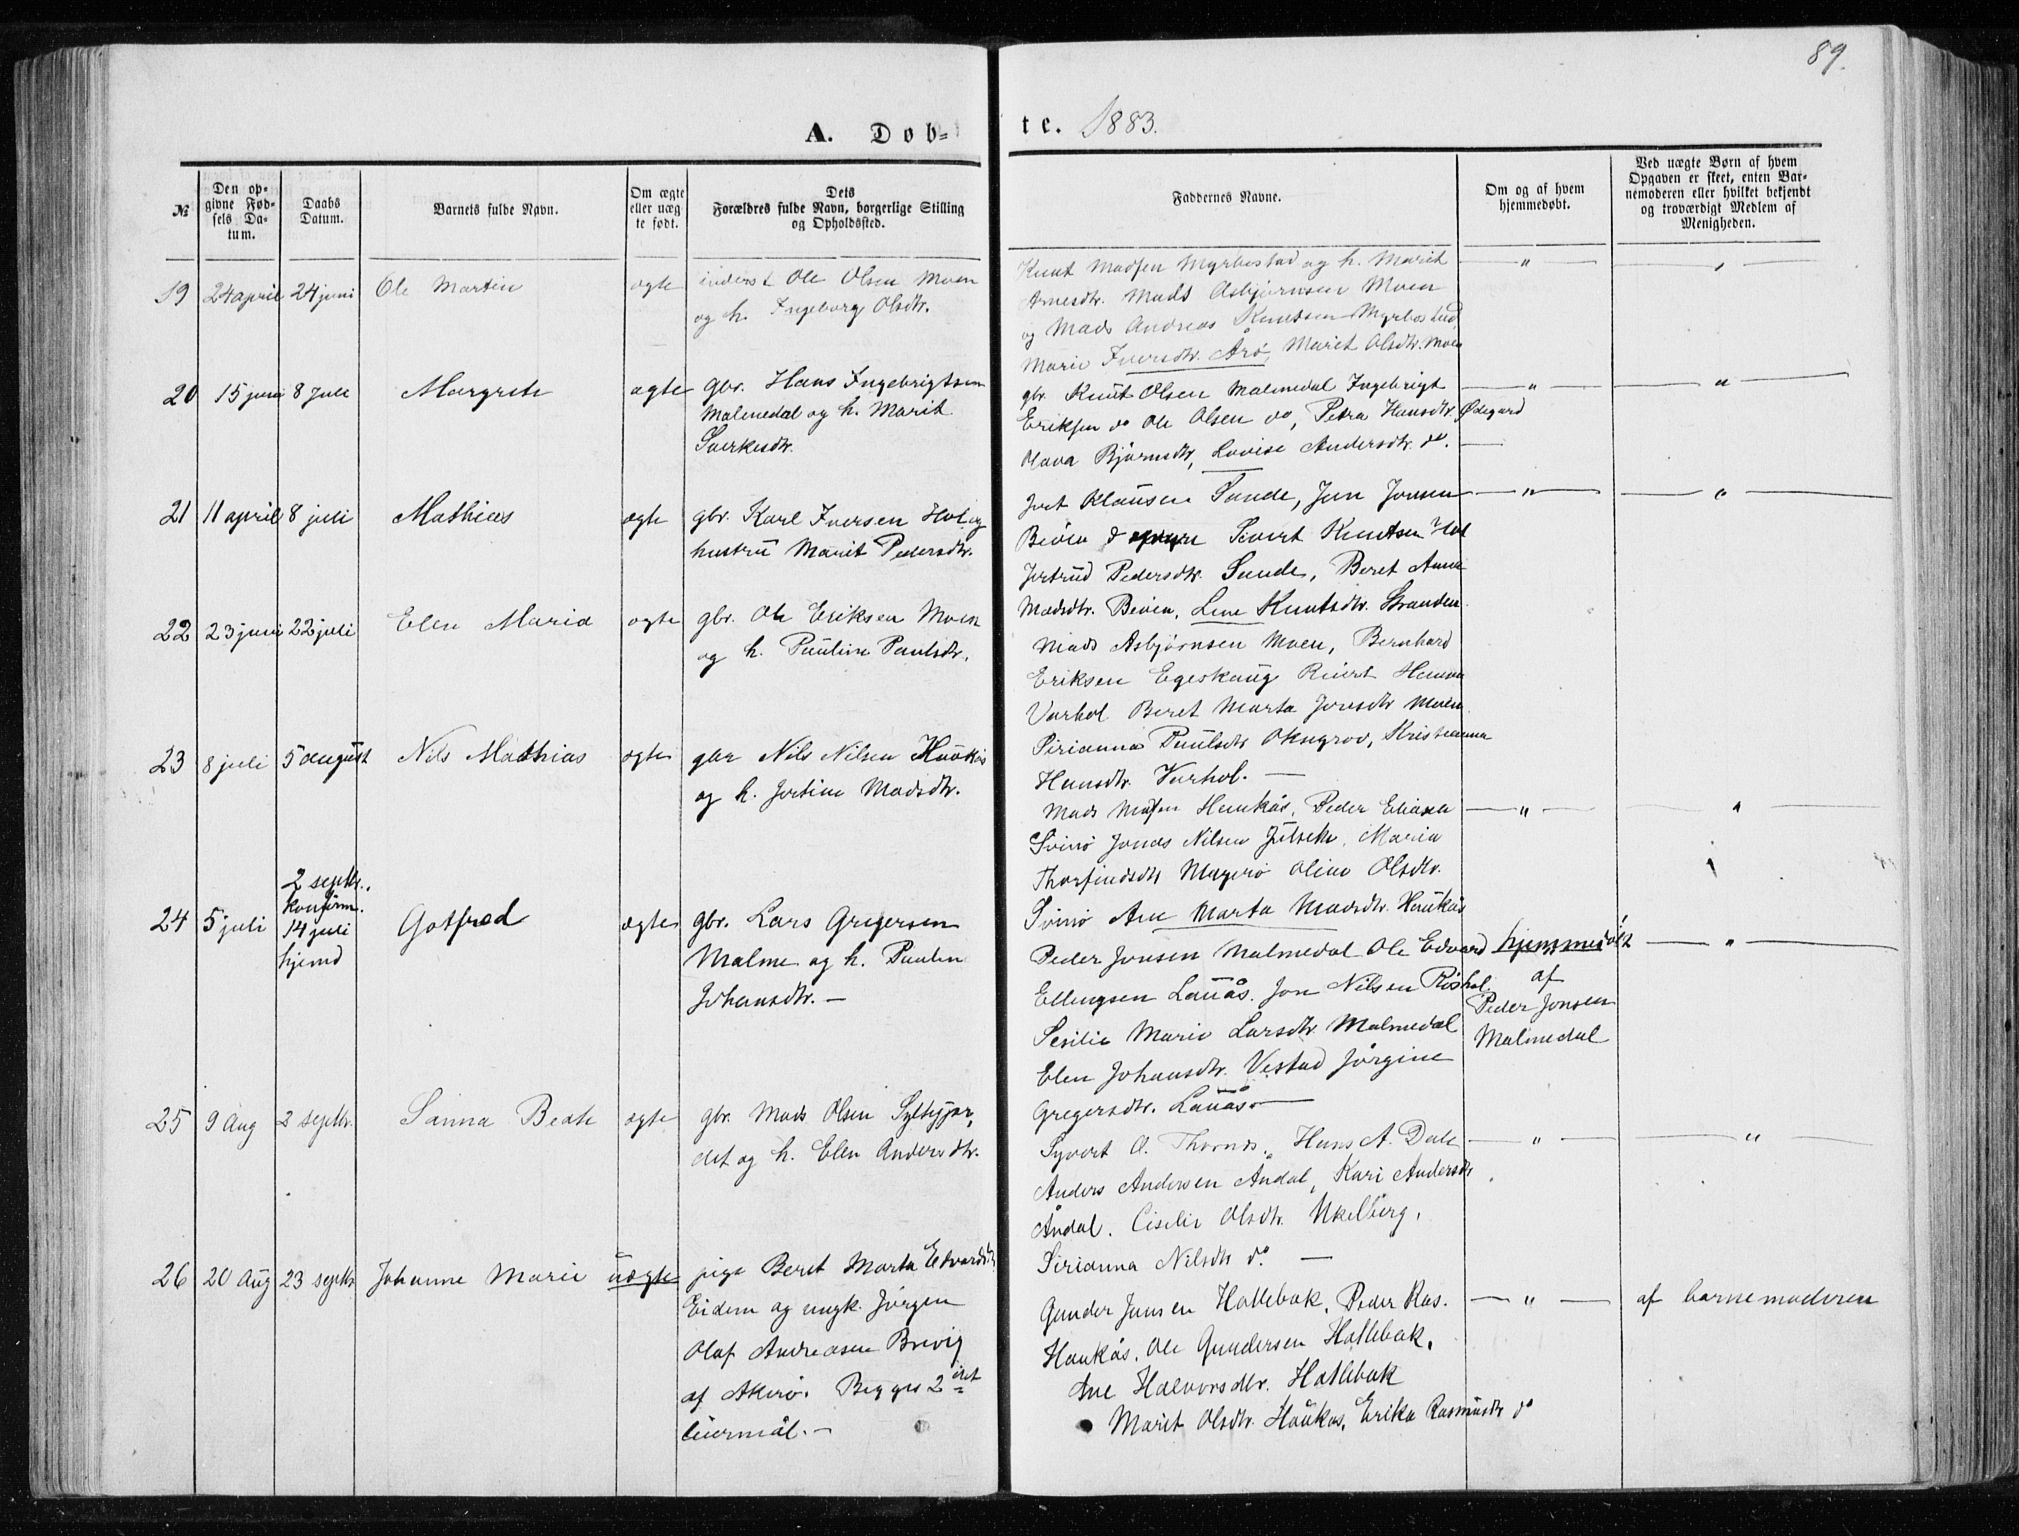 89.
A. Døb-
te. 1883.
№
Den op-
givne Fød-
sels Da-
tum.
Daabs
Datum.
Barnets fulde Navn.
Om ægte
eller uæg-
te født.
Dets
Forældres fulde Navn, borgerlige Stilling
og Opholdssted.
Faddernes Navne.
Om og af hvem
hjemmedøbt.
Ved uægte Børn af hvem
Opgaven er skeet, enten Bar-
nemoderen eller hvilket bekjendt
og troværdigt Medlem af
Menigheden.
19 24 april 24 juni Ole Martin ægte inderst Ole Olsen Moen
og h. Ingeborg Olsdtr.
Knut Madsen Myrbostad og h. Marit
Arnesdtr. Mads Asbjørnsen Moen
og Mads Andreas Knutsen Myrbostad,
Marie Iversdtr. Arø, Marit Olsdtr. Moen
20 15 juni 8 Juli Margrete ægte gbr. Hans Ingebrigtsen
Malmedal og h. Marit
Sverkesdtr.
gbr. Knut Olsen Malmedal Ingebrigt
Eriksen do Ole Olsen do, Petra Hansdtr. Ødegard
Olava Bjørnsdtr, Lovise Andersdtr. do. —
21 11 april 8 juli Mathias ægte gbr. Karl Iversen Hol og
hustru Marit Pedersdtr.
Jort Klausen Sunde, Jon Jonsen
Sivert Knutsen Hol
Jertrud Pedersdtr. Sunde, Beret Anna
Madsdtr. Line Knutsdtr. Stranden
22 23 juni 22 juli Elen Maria ægte gbr. Ole Eriksen Moen
og h. Pauline Paulsdtr.
Mads Asbjørnsen Moen, Bernhard
Eriksen Egeskaug
Varhol Beret Marta Jonsdtr Moen
Sirianna Paulsdtr Kristianna
Hansdtr. Varhol. —
23 8 juli 5 august Nils Mathias ægte gbr Nils Nilsen Haukås
og h. Jertine Madsdtr.
Mads Haukås, Peder Eliasen
Svinø Jonas Nilsen Maria
Thorfindsdtr Magerø Oline Olsdtr.
Svinø Ane Marta Madsdtr. Haukås
24 5 juli 2 septbr.
konfirm.
14 juli
hjemd
Gotfred ægte gbr. Lars Gregersen
Malme og h. Paulin
Johansdtr. —
Peder Jonsen Malmedal Ole Edvard
Ellingsen Lauås. Jon Nilsen Røshol.
Sesilie Marie Larsdtr. Malmedal
Elen Johansdtr. Vestad Jørgine
Gregersdtr. Lauås —
hjemmedöbt
af
Peder Jonsen
Malmedal
25 9 Aug 2 septbr. Sanna Beate ægte gbr. Mads Olsen Syltegjer,
det og h. Elen Andersdtr.
Syvert O. Hans A. Dale
Anders Andersen Åndal, Kari Andersdtr
Åndal. Ciselie Olsdtr.
Sirianna Nilsdtr do. —
26 20 Aug 23 septbr. Johanne Marie uægte pige Beret Marta Edvardsdtr
Eidem og ungk. Jørgen
Olaf Andreasen Brevig
af Akerø. Begges 2det
leiermål. —
Gunder Jansen Hallebak, Peder Ras.
Haukås. Ole Gundersen Hatlebak,
Ane Halvorsdtr. Hatlebak
Marit Olsdtr. Haukås, Erika Rasmusdtr do
af barnemoderen